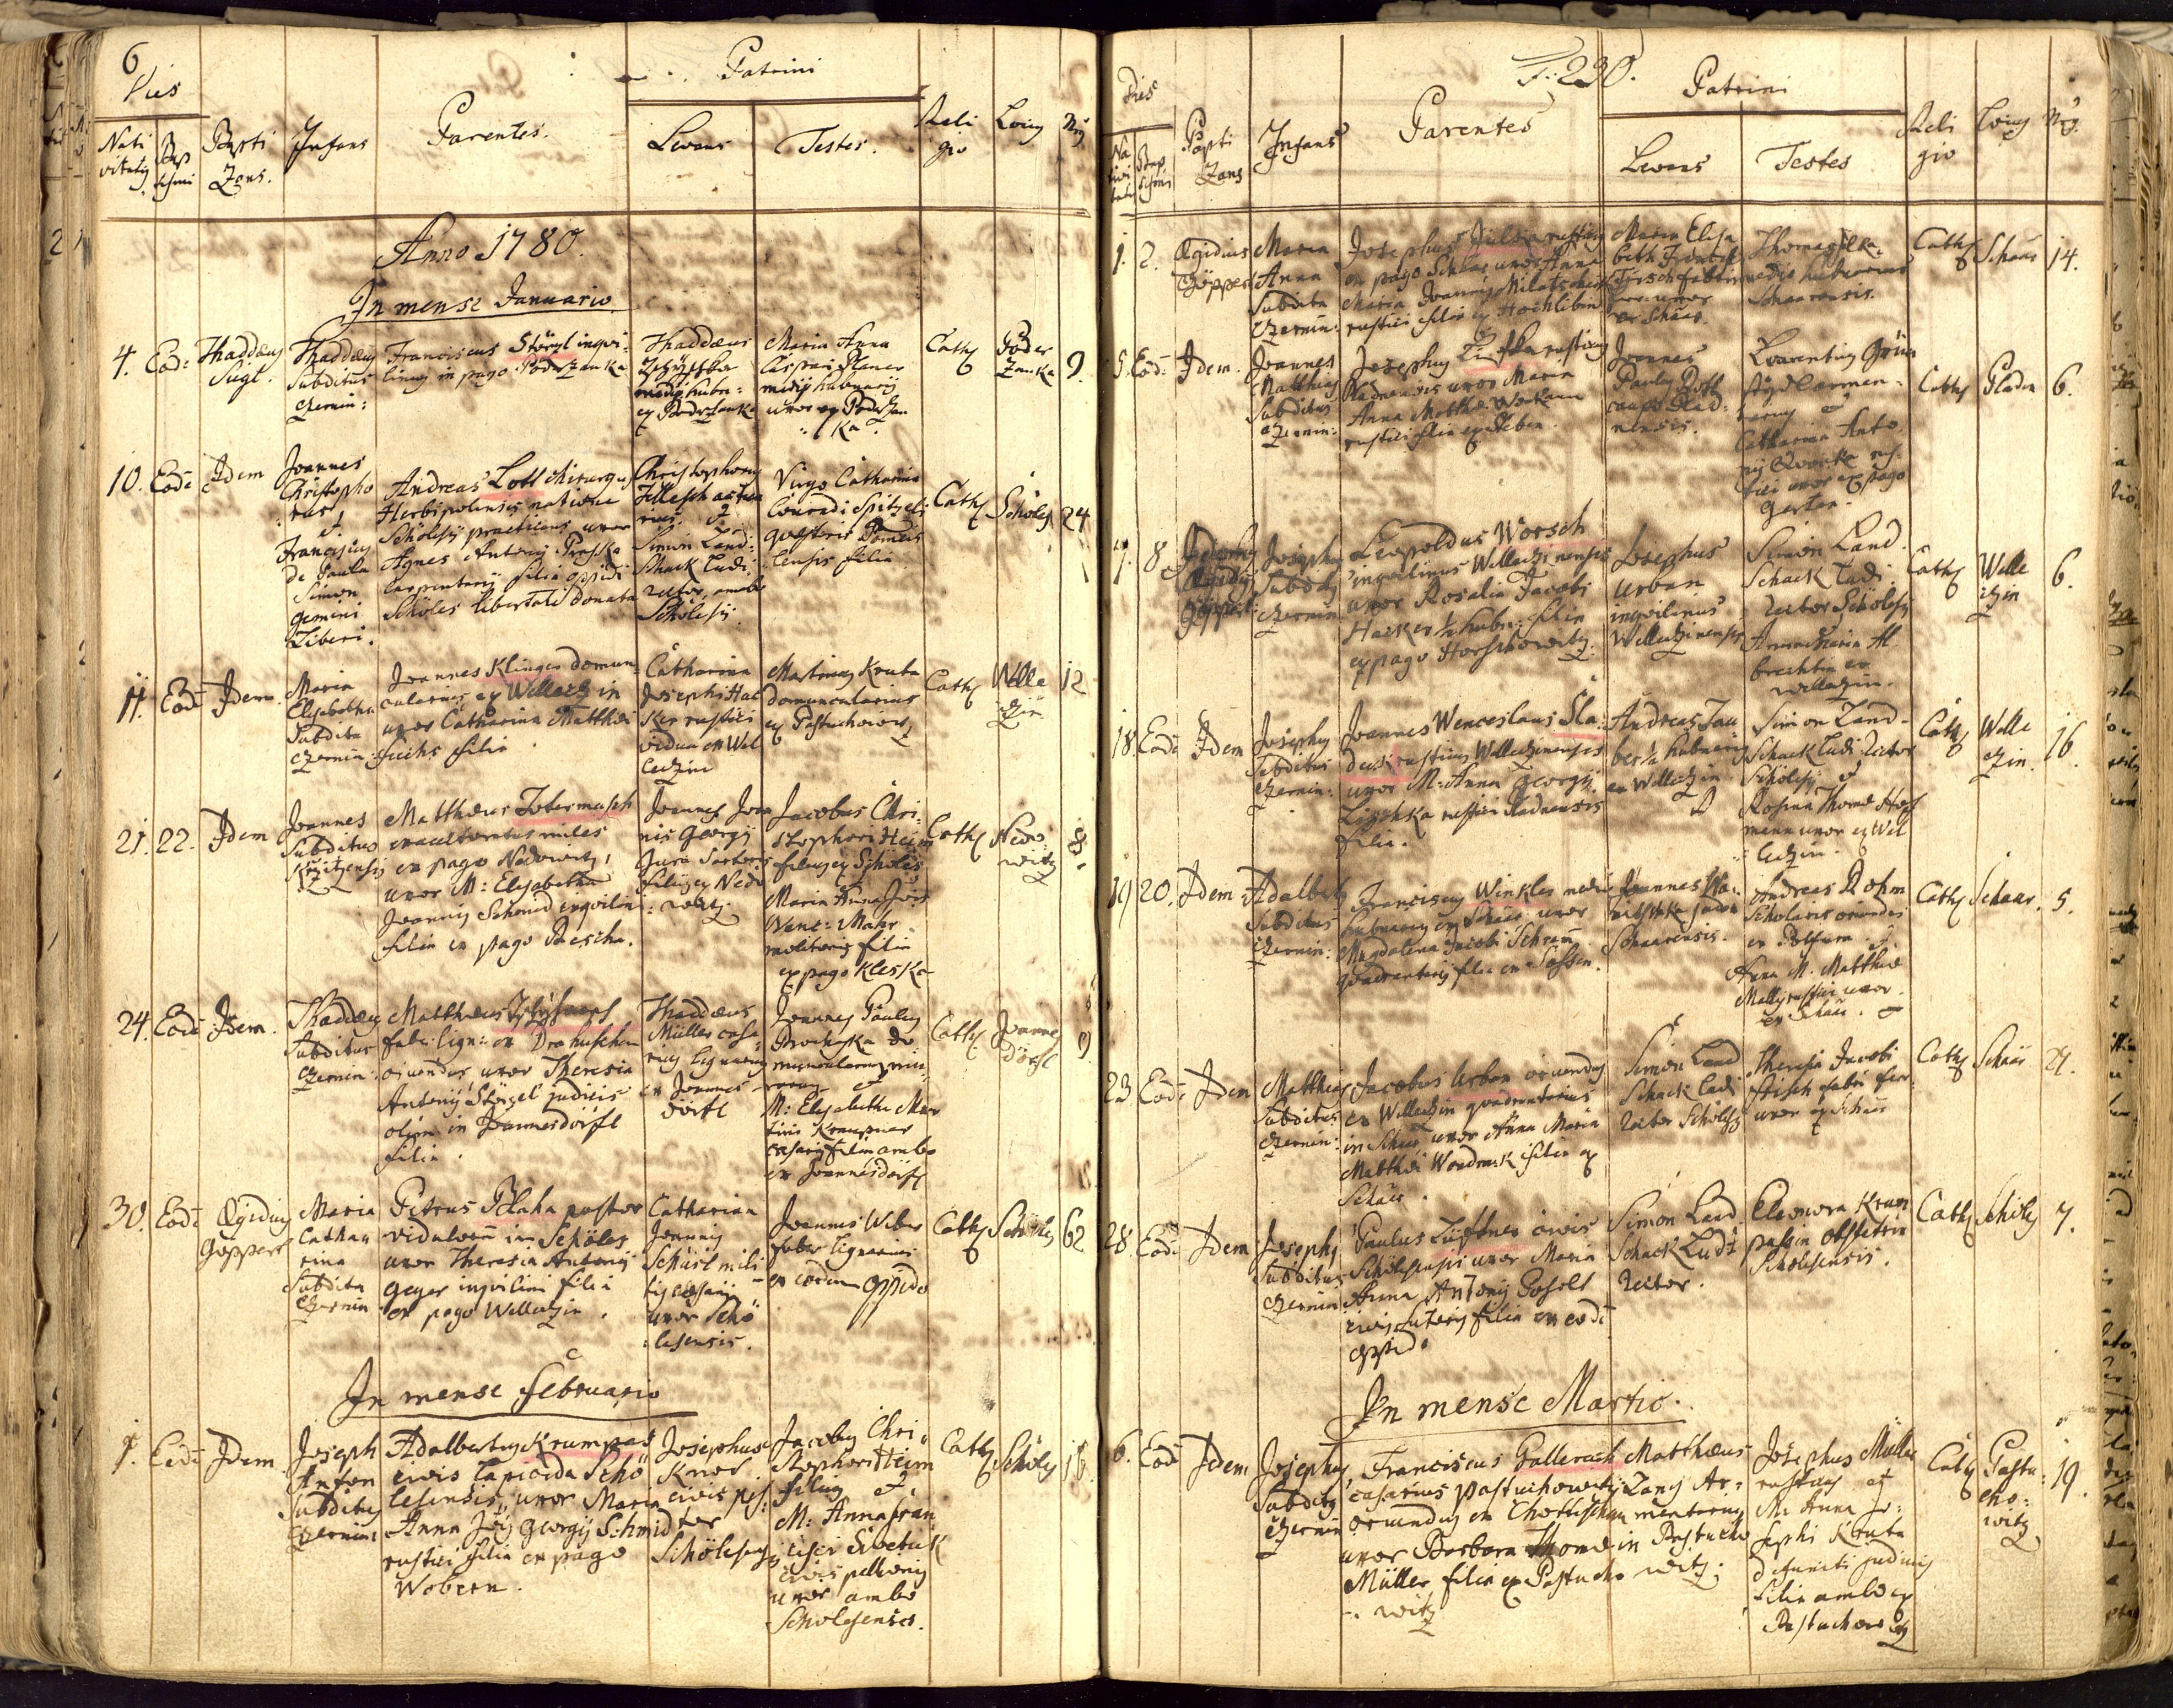 6
Dies
Patrini
Nati
vitatis
Bap
tismi
Bapti
zans.
Infans
Parentes.
Levans
Testes.
Reli
gio
Locus
Nrs
Anno 1780.
In mense Januario
4. Eod:
Thaddæus
Sigl.
Thaddæus
Subditus
Czernin:
Franciscus Störzl inqui-
linus in pago Poderzanka
Thaddæus
medius hubn:
ex Poderzanka
Maria Anna
Caspari Planer
medii hubnarii
uxor ex Poderzan
ka
Cath
Poder
zanka
9.
10. Eod: Idem
Joannes
Christopho
rus
et
Franciscus
de Paula
Simon
gemini
Liberi.
Andreas Lott chirurgus
Herbipolensis natione
Schölesii practicans uxor
Agnes Antonii Proska
carpentarii filia oppidi
Schöles libertate donata
Christophorus
et
Simon Land-
schack ludi-
rector, ambo
Schölesii.
Virgo Catharina
Conradi Spitzeli
quæstoris
lensis filia
Cath
Scholes
24
11. Eod: Idem
Maria
Elisabetha
Subdita
Czernin:
Joannes Klinger domun-
cularius ex Welleczin
uxor Catharina Matthæi
Fuchs filia
Catharina
Josephi Hac
ker rustici
vidua ex Wel
leczin
Martinus Kruta
domuncularius
ex Pastuchowitz
Cath
Welle
czin
12
21. 22. Idem
Joannes
Subditus
Matthæus Totermusch
exauctoratus miles
ex pago Nedowitz,
uxor M: Elisabetha
Joannis Schmid inquilini
filia ex pago Rescha.
Joannes Joan
nis Georgii
Jura Sartoris
filius ex Nedo
witz
Jacobus Chri-
stophori Heim
filius ex Schöles
Maria Anna
Wenc: Mahr
molitoris filia
ex pago Kleska
Cath
Nedo
witz
8
24. Eod: Idem.
Thaddæus
Subditus
Czernin:
Matthæus
fab: lign: ex Drahuschen
oriundus uxor Theresia
Antonii Störzel judicis
olim in Joannesdörfl
filia.
Thaddæus
Müller casa
rius lignarius
ex Joannes-
dörfl
Joannes Paulus
Prochaska do
muncularius
et
M: Elisabetha Mar
tini Kraupner
casarii filia ambo
ex Joannesdörfl
Cath
Joannes
dörfl
9
30. Eod:
Ægidius
Göppert
Maria
Catha
rina
Subdita
Czernin
Petrus Blaha pastor
vidulorum in Schöles
uxor Theresia Antonii
Geyer inquilini filia
ex pago Welleczin.
Catharina
Joannis
Schüsl mili
tis cæsarii
uxor Schö
lesensis.
Joannes Weber
faber lignarius
ex eodem oppido
Cath
Schöles
62
In mense Februario
Eod: Idem.
Joseph
Anton
Subditus
Czernin:
Adalbertus Krumpas
civis lapicida Schö
lesensis, uxor Maria
Anna Georgii Schmid
rustici filia ex pago
Wobern.
Josephus
Knor
civis pis
tor
Schölesensis
Jacobus Chri-
stophori Heim
filius et
M: Anna Fran
cisci Swetlik
civis pellionis
uxor ambo
Scholesenses.
Cath
Schöles
16.
F: 230.
Dies
Patrini
Na
tivi
tatis
Bap
tismi
Bapti
zans
Infans
Parentes
Levans
Testes
Reli
gio
Locus
Nrs.
1. 2.
Ægidius
Göppert
Maria
Anna
Subdita
Czernin:
Josephus rusticus
ex pago Schaar uxor Anna
Maria Joannis
rustici filia ex Hochlibin
Maria Elisa
beth
uxor
ex Schaar.
Thomas
medius hubnarius
Schaarensis.
Cath
Schaar
14.
5. Eod: Idem.
Joannes
Matthias
Subditus
Czernin:
Josephus rusticus
Pladnensis uxor Maria
Anna Matthæi
rustici filia ex
Joannes
Paulus
caupo Plad-
nensis.
Laurentius Grün
et
Catharina Anto
nii rus
tici uxor ex pago
Gerten.
Cath
Pladen
6.
7. 8.
Ægidius
Göppert:
Josephus
Subditus
Czernin
Leopoldus Worsch
inquilinus Welleczinensis
uxor Rosalia Jacobi
Hacker ½ hubn: filia
ex pago Horschowitz.
Josephus
Urban
inquilinus
Welleczinensis
Simon Land
schack ludi
rector Schölesii
Anna Maria Al
brechtin ex
Welleczin.
Cath
Welle
czin
6.
18. Eod: Idem
Josephus
Subditus
Czernin:
Joannes Wenceslaus Sla-
dek rusticus Welleczinensis
uxor M: Anna Georgii
Lischka rustici Pladnensis
filia.
Andreas Tau
ber ½ hubnarius
ex Welleczin
Simon Land-
schack ludi rector
Schölesii et
Rosina Thomæ Hof
mann uxor ex Wel
leczin.
Cath
Welle
czin.
16.
19 20. Idem
Adalbertus
Subditus
Czernin:
Franciscus Winkler medius
hubnarius ex Schaar uxor
Magdalena Jacobi Schram
quadrantarii filia ex Sossen.
Joannes
Schaarensis.
Andreas Böhm
Scholaris oriundus
ex et
Anna M. Matthæi
rustici uxor
ex Schaar.
Cath
Schaar.
5.
23 Eod: Idem
Matthias
Subditus
Czernin:
Jacobus Urban oriundus
ex Welleczin quadrantarius
in Schaar uxor Anna Maria
Matthæi Wondrack filia ex
Schaar.
Simon Land
schack ludi
rector Schölesii
Theresia Jacobi
Fitsch fabri fer
uxor ex Schaar
Cath
Schaar
21.
28. Eod: Idem
Josephus
Subditus
Czernin
Paulus Lüftner civis
Schölesensis uxor Maria
Anna Antonii Posselt
civis filia ex eod:
oppido
Simon Land
schack Ludi
rector.
Eleonora Kram
passin obstetrix
Scholesensis.
Cath
Schöles
7.
In mense Martio.
6. Eod: Idem
Josephus
Subditus
Czernin
Franciscus Gallerach
casarius Pastuchowitz
oriundus ex Chottieschau
uxor Barbara Thomæ
Müller filia ex Pastucho
witz
Matthæus
Lang Ar-
mentarius
in Pastucho
witz;
Josephus Müller
rusticus et
M: Anna Jo-
sephi Kruta
defuncti judicis
filia ambo ex
Pastuchowitz
Cath
Pastu-
cho-
witz
19.